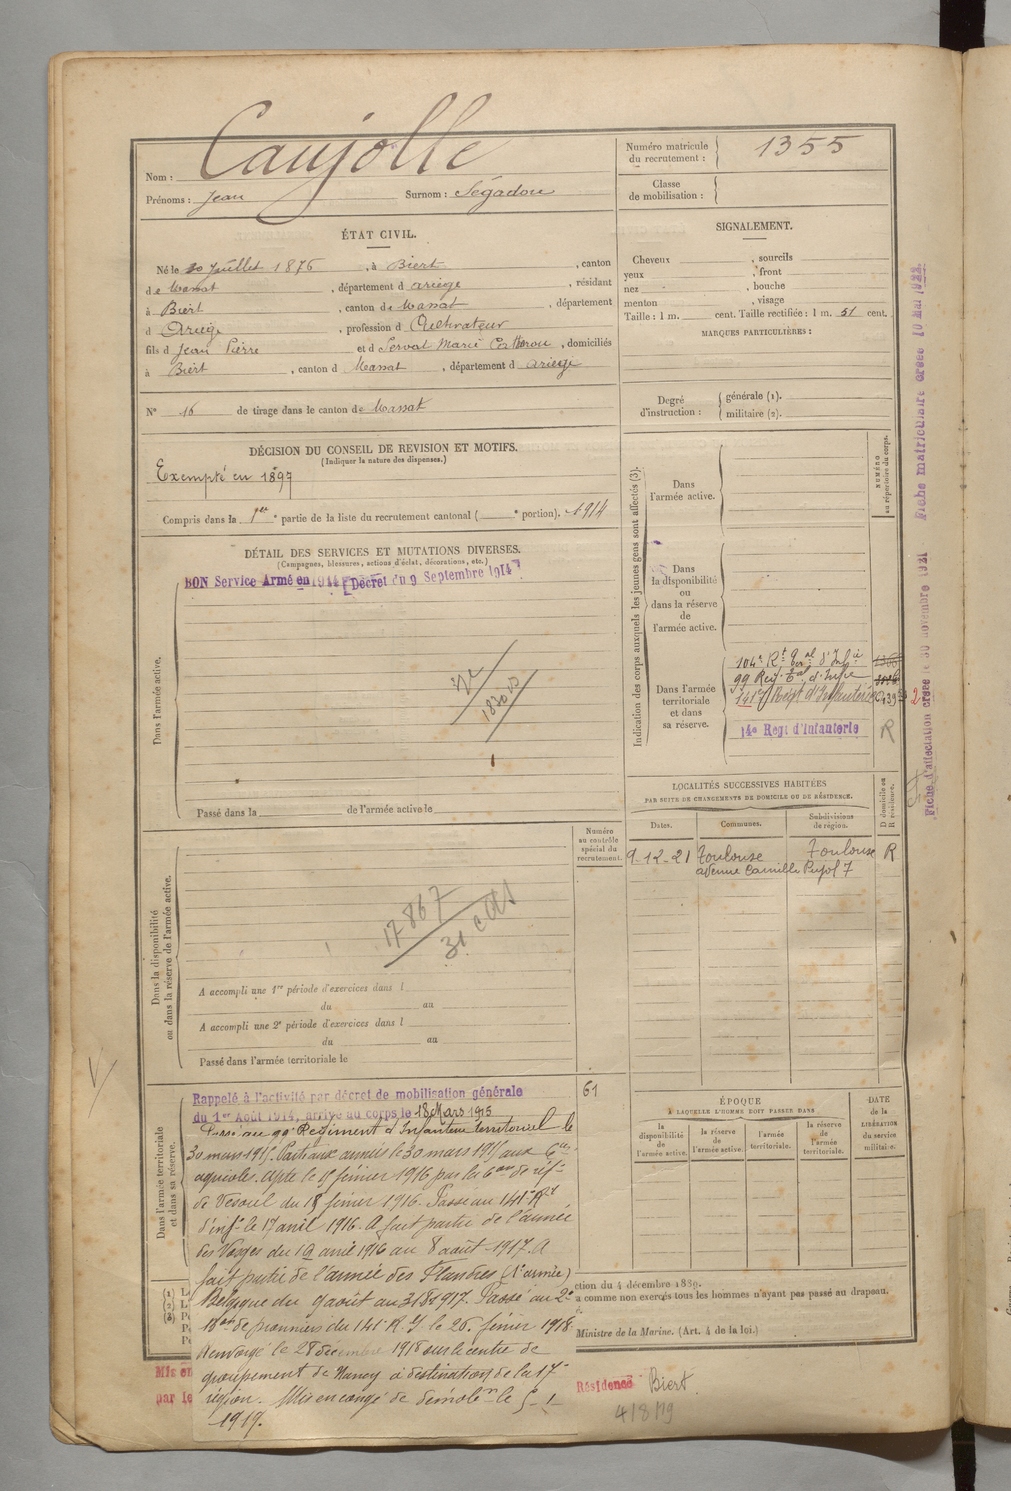 Nom : Caujolle
Prénoms : Jean Surnom : Ségadou
Numéro matricule du recrutement : 1355
Classe de mobilisation :
ÉTAT CIVIL.
Né le 20 Juillet 1876, à Biert, canton
de Massat, département d ariège, résidant
à Biert, canton de Massat, département
d Ariège, profession d Cultivateur
fils d Jean Pierre et d Servat Marie, domiciliés
à Biert, canton d Massat, département d ariège
N° 16 de tirage dans le canton de Massat
SIGNALEMENT.
Cheveux , sourcils
yeux , front
nez , bouche
menton , visage
Taille : 1 m. cent. Taille rectifiée : 1 m. 51 cent.
MARQUES PARTICULIÈRES :
Degré d'instruction : générale (1).
militaire (2).
DÉCISION DU CONSEIL DE REVISION ET MOTIFS.
(Indiquer la nature des dispenses.)
Exempté en 1897
Compris dans la 1ère partie de la liste du recrutement cantonal ( e portion). 1914
DÉTAIL DES SERVICES ET MUTATIONS DIVERSES.
(Campagnes, blessures, actions d'éclat, décorations, etc.)
BON Service Armé en 1914 [Décret du 9 Septembre 1914]
Dans l'armée active.
Passé dans la de l'armée active le
Indication des corps auxquels les jeunes gens sont affectés (3).
NUMÉRO au répertoire du corps.
Dans l'armée active.
Dans la disponibilité ou dans la réserve de l'armée active.
Dans l'armée territoriale et dans sa réserve.
104e Rt Tal d'Infie
99 Regt Tal d'Infie
141e Regt d'Infanterie
14e Regt d'Infanterie R
LOCALITÉS SUCCESSIVES HABITÉES
PAR SUITE DE CHANGEMENTS DE DOMICILE OU DE RÉSIDENCE.
D domicile ou R résidence.
Dates. Communes. Subdivisions de région.
9-12-21 Toulouse Toulouse R
avenue Camille Pujol 7
Dans la disponibilité ou dans la réserve de l'armée active.
Numéro au contrôle spécial du recrutement.
17867
31
A accompli une 1re période d'exercices dans l
du au
A accompli une 2e période d'exercices dans l
du au
Passé dans l'armée territoriale le
Dans l'armée territoriale et dans sa réserve.
61
Rappelé à l'activité par décret de mobilisation générale
du 1er Août 1914, arrivé au corps le 18 Mars 1915
Passé au 99e Régiment d'Infanterie territorial le
30 mars 1915. Parti aux armées le 30 mars 1915 aux
agricoles. le 15 février 1916 par la
de Vesoul du 18 février 1916. Passé au 141e Rgt
d'infie le 17 avril 1916. A fait partie de l'armée
des Vosges du 19 avril 1916 au 8 août 1917. A
fait partie de l'armée des Flandres (1e armée)
Belgique du 9 août au 31 917. Passé au 2e
de pionniers du 141e R.I le 26 février 1918
Renvoyé le 28 décembre 1918 sur le centre de
groupement de Nancy à destination de la 17e
région. Mis en congé de démobon le 5-1-
1919.
ÉPOQUE
À LAQUELLE L'HOMME DOIT PASSER DANS
la disponibilité de l'armée active.
la réserve de l'armée active.
l'armée territoriale.
la réserve de l'armée territoriale.
DATE de la LIBÉRATION du service militaire.
(1)
(2)
(3)
ction du 4 décembre 1889.
a comme non exercés tous les hommes n'ayant pas passé au drapeau.
Ministre de la Marine. (Art. 4 de la loi.)
Mis en
par le
Résidence Biert
4/8/19
Fiche d'affectation créée le 30 novembre 1921
Fiche matriculaire créée 10 Mai 1922